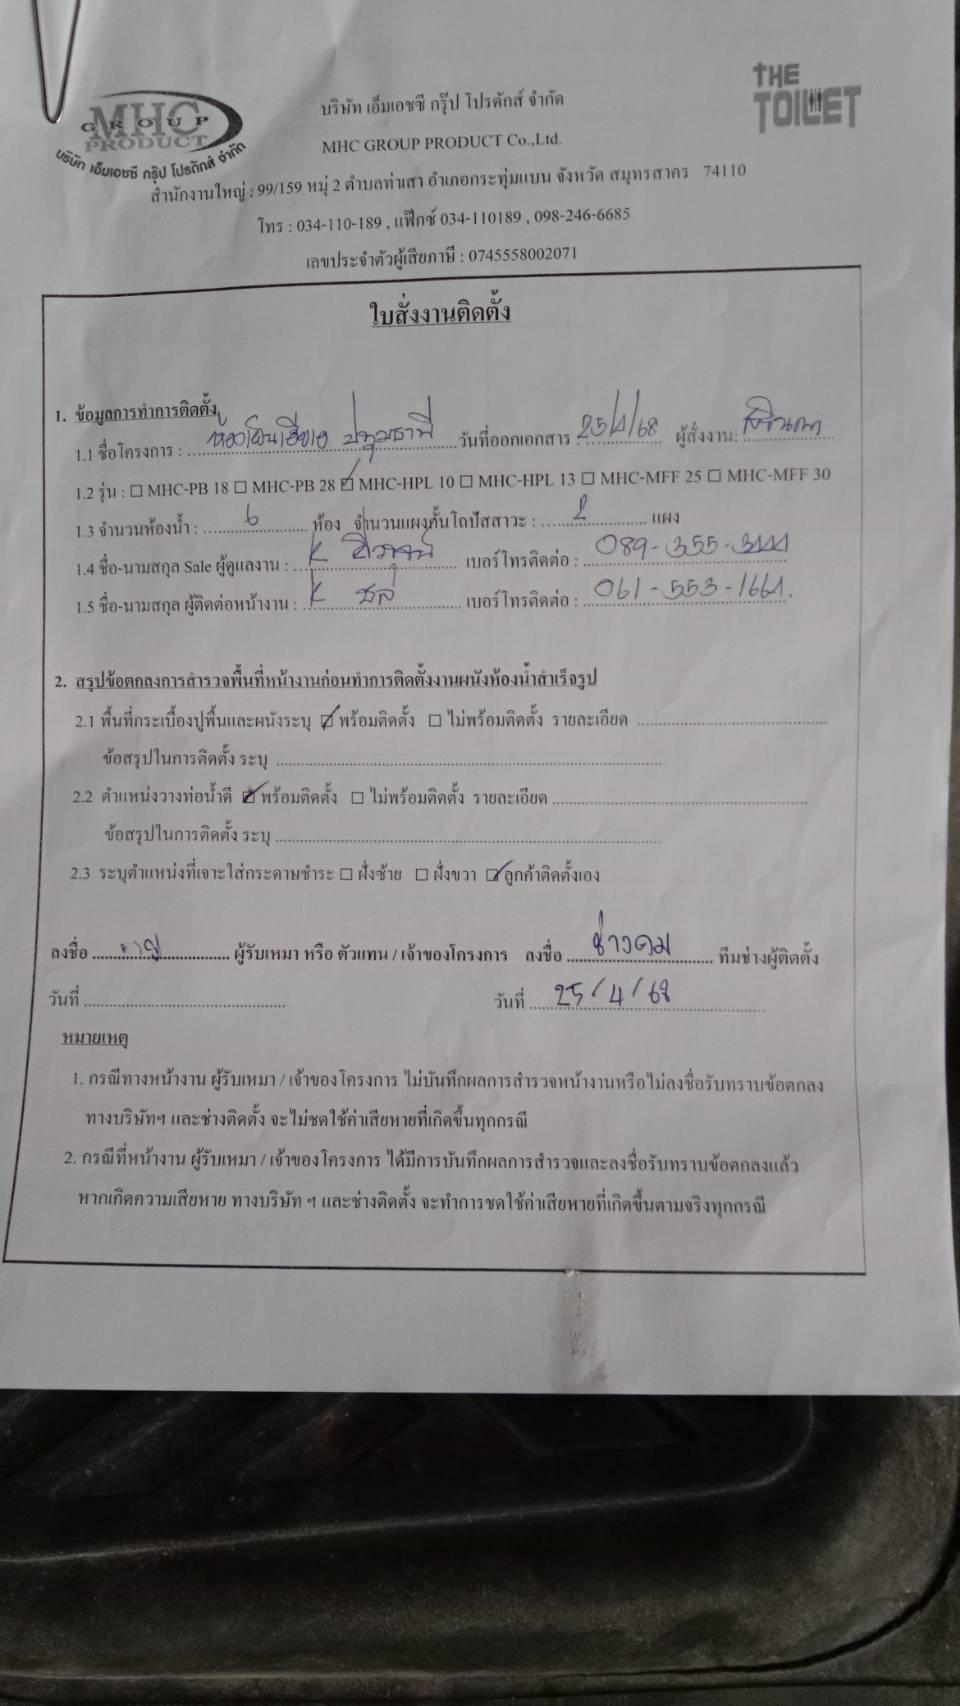 MHC
GROUP
PRODUCT
บริษัท เอ็มเอชซี กรุ๊ป โปรดักส์ จำกัด
THE
TOILET
บริษัท เอ็มเอชซี กรุ๊ป โปรดักส์ จำกัด
MHC GROUP PRODUCT Co.,Ltd.
สำนักงานใหญ่ : 99/159 หมู่ 2 ตำบลท่าเสา อำเภอกระทุ่มแบน จังหวัด สมุทรสาคร 74110
โทร : 034-110-189 , แฟ๊กซ์ 034-110189 , 098-246-6685
เลขประจำตัวผู้เสียภาษี : 0745558002071
ใบสั่งงานติดตั้ง
1. ข้อมูลการทำการติดตั้ง
1.1 ชื่อโครงการ : ห้องเย็น ปทุมธานี วันที่ออกเอกสาร 25/4/68 ผู้สั่งงาน:
1.2 รุ่น : ☐ MHC-PB 18 ☐ MHC-PB 28 ☑ MHC-HPL 10 ☐ MHC-HPL 13 ☐ MHC-MFF 25 ☐ MHC-MFF 30
1.3 จำนวนห้องน้ำ : 6 ห้อง จำนวนแผงกั้นโถปัสสาวะ : 2 แผง
1.4 ชื่อ-นามสกุล Sale ผู้ดูแลงาน : K เบอร์โทรติดต่อ : 089-355-3444
1.5 ชื่อ-นามสกุล ผู้ติดต่อหน้างาน : K ชล เบอร์โทรติดต่อ : 061-553-1664.
2. สรุปข้อตกลงการสำรวจพื้นที่หน้างานก่อนทำการติดตั้งงานผนังห้องน้ำสำเร็จรูป
2.1 พื้นที่กระเบื้องปูพื้นและผนังระบุ ☑ พร้อมติดตั้ง ☐ ไม่พร้อมติดตั้ง รายละเอียด
ข้อสรุปในการติดตั้ง ระบุ
2.2 ตำแหน่งวางท่อน้ำดี ☑ พร้อมติดตั้ง ☐ ไม่พร้อมติดตั้ง รายละเอียด
ข้อสรุปในการติดตั้ง ระบุ
2.3 ระบุตำแหน่งที่เจาะใส่กระดาษชำระ ☐ ฝั่งซ้าย ☐ ฝั่งขวา ☑ ลูกค้าติดตั้งเอง
ลงชื่อ ผู้รับเหมา หรือ ตัวแทน / เจ้าของโครงการ ลงชื่อ ช่างคม ทีมช่างผู้ติดตั้ง
วันที่ วันที่ 25/4/68
หมายเหตุ
1. กรณีทางหน้างาน ผู้รับเหมา / เจ้าของโครงการ ไม่บันทึกผลการสำรวจหน้างานหรือไม่ลงชื่อรับทราบข้อตกลง
ทางบริษัทฯ และช่างติดตั้ง จะไม่ชดใช้ค่าเสียหายที่เกิดขึ้นทุกกรณี
2. กรณีที่หน้างาน ผู้รับเหมา / เจ้าของโครงการ ได้มีการบันทึกผลการสำรวจและลงชื่อรับทราบข้อตกลงแล้ว
หากเกิดความเสียหาย ทางบริษัท ฯ และช่างติดตั้ง จะทำการชดใช้ค่าเสียหายที่เกิดขึ้นตามจริงทุกกรณี